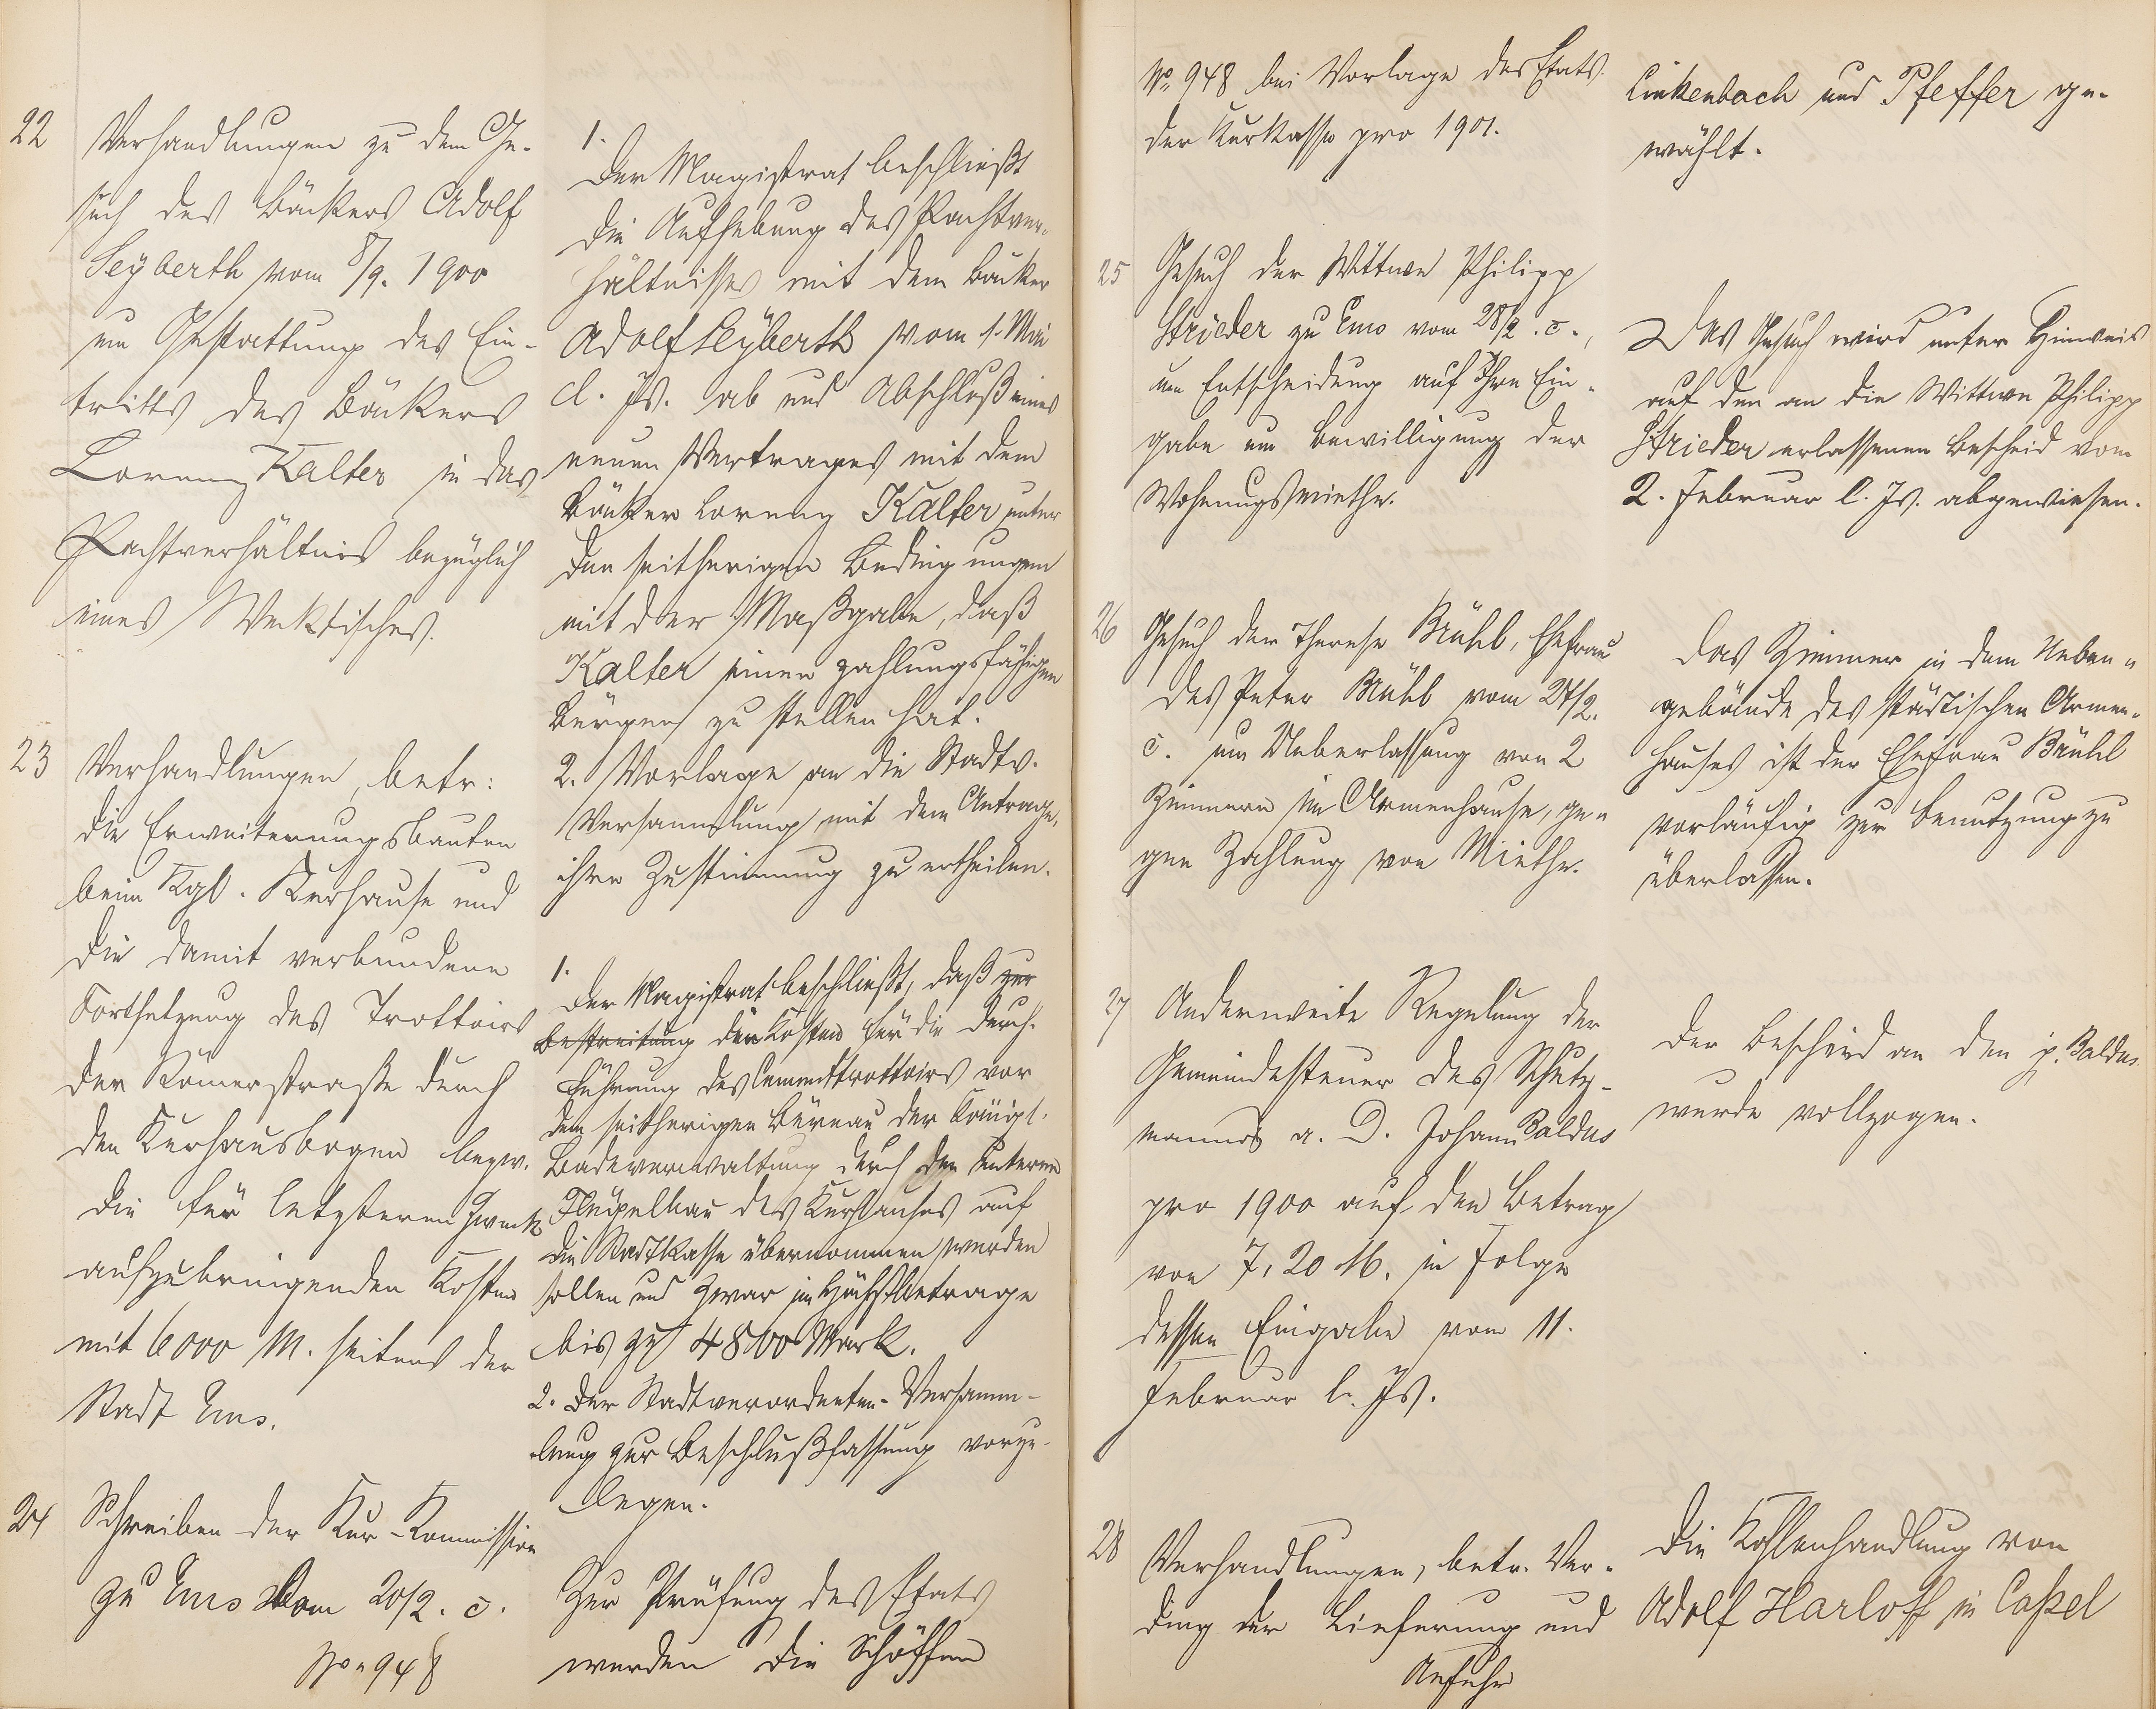 22
Verhandlungen zu dem Ge-
such des Bäckers Adolf
Seyberth vom 8/9. 1900
um Gestattung des Ein-
tritts des Bäckers
Lorenz Kalter in das
Pachtverhältnis bezüglich
eines Wecktisches.
23
Verhandlungen, betr:
die Erweiterungsbauten
beim Kgl. Kurhause und
die damit verbundene
Fortsetzung des Trottoirs
der Römerstraße durch
den Kurhausbogen bezw.
die für letzteren Zweck
aufzubringenden Kosten
mit 6000 M. seitens der
Stadt Ems.
24
Schreiben der Kur-Kommission
zu Ems vom 20/2. c.
No 948
1.
Der Magistrat beschließt
die Aufhebung des Pachtver-
hältnisses mit dem Bäcker
Adolf Seyberth vom 1. Mai
d. Js. ab und Abschluß eines
neuen Vertrages mit dem
Bäcker Lorenz Kalter unter
den seitherigen Bedingungen
mit der Maßgabe, daß
Kalter einen zahlungsfähigen
Bürgen zu stellen hat.
2. Vorlage an die Stadtv.
Versammlung mit dem Antrage,
ihre Zustimmung zu ertheilen.
1.
Der Magistrat beschließt, daß zur
Bestreitung die Kosten für die Durch-
führung des Cementtrottoirs vor
dem seitherigen Büreau der Königl.
Badeverwaltung durch den unteren
Flügelbau des Kurhauses auf
die Stadtkasse übernommen werden
sollen und zwar im Höchstbetrage
bis zu 4800 Mark.
2. Der Stadtverordneten-Versamm-
lung zur Beschlußfassung vorzu-
legen.
Zur Prüfung des Etats
werden die Schöffen
No 948 bei Vorlage des Etats
der Kurkasse pro 1901.
25
Gesuch der Wittwe Philipp
Strieder zu Ems vom 28/2. c.,
um Entscheidung auf Ihre Ein-
gabe um Bewilligung der
Wohnungsmiethe.
26
Gesuch der Therese Brühl, Ehefrau
des Peter Brühl vom 27/2.
c. um Ueberlassung von 2
Zimmern im Armenhause, ge-
gen Zahlung von Miethe.
27
Anderweite Regelung der
Gemeindesteuer des Schutz-
manns a. D. Johann Baldus
pro 1900 auf den Betrag
von 7,20 M. in Folge
dessen Eingabe vom 11.
Februar l. Js.
28
Verhandlungen, betr. Ver-
ding der Lieferung und
Anfuhr
Linkenbach und Pfeffer ge-
wählt.
Das Gesuch wird unter Hinweis
auf den an die Wittwe Philipp
Strieder erlassenen Bescheid vom
2. Februar l. Js. abgewiesen.
Das Zimmer in dem Neben-
gebäude des städtischen Armen-
hauses ist der Ehefrau Brühl
vorläufig zur Benutzung zu
überlassen.
Der Bescheid an den p. Baldus
wurde vollzogen.
Die Kohlenhandlung von
Adolf Harloff in Caßel